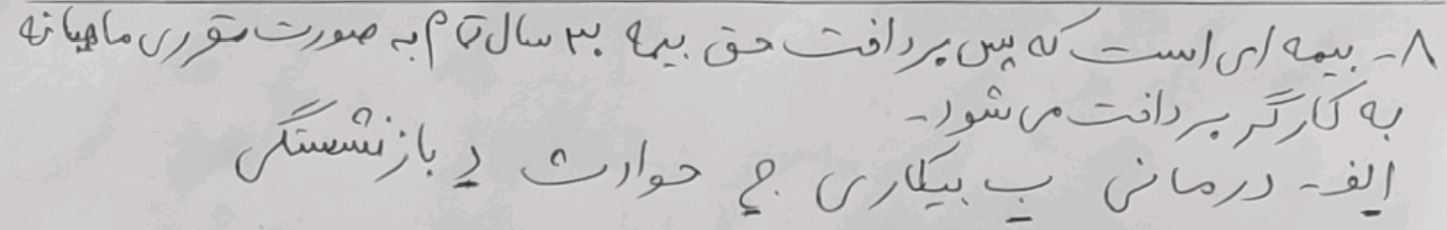 ۸- بیمه ای است که پس پرداخت حق بیمه ۳۰ سال تمام به صورت مقرری ماهیانه
به کارگر پرداخت می شود.
الف- درمانی ب بیکاری ج حوادث د بازنشستگی